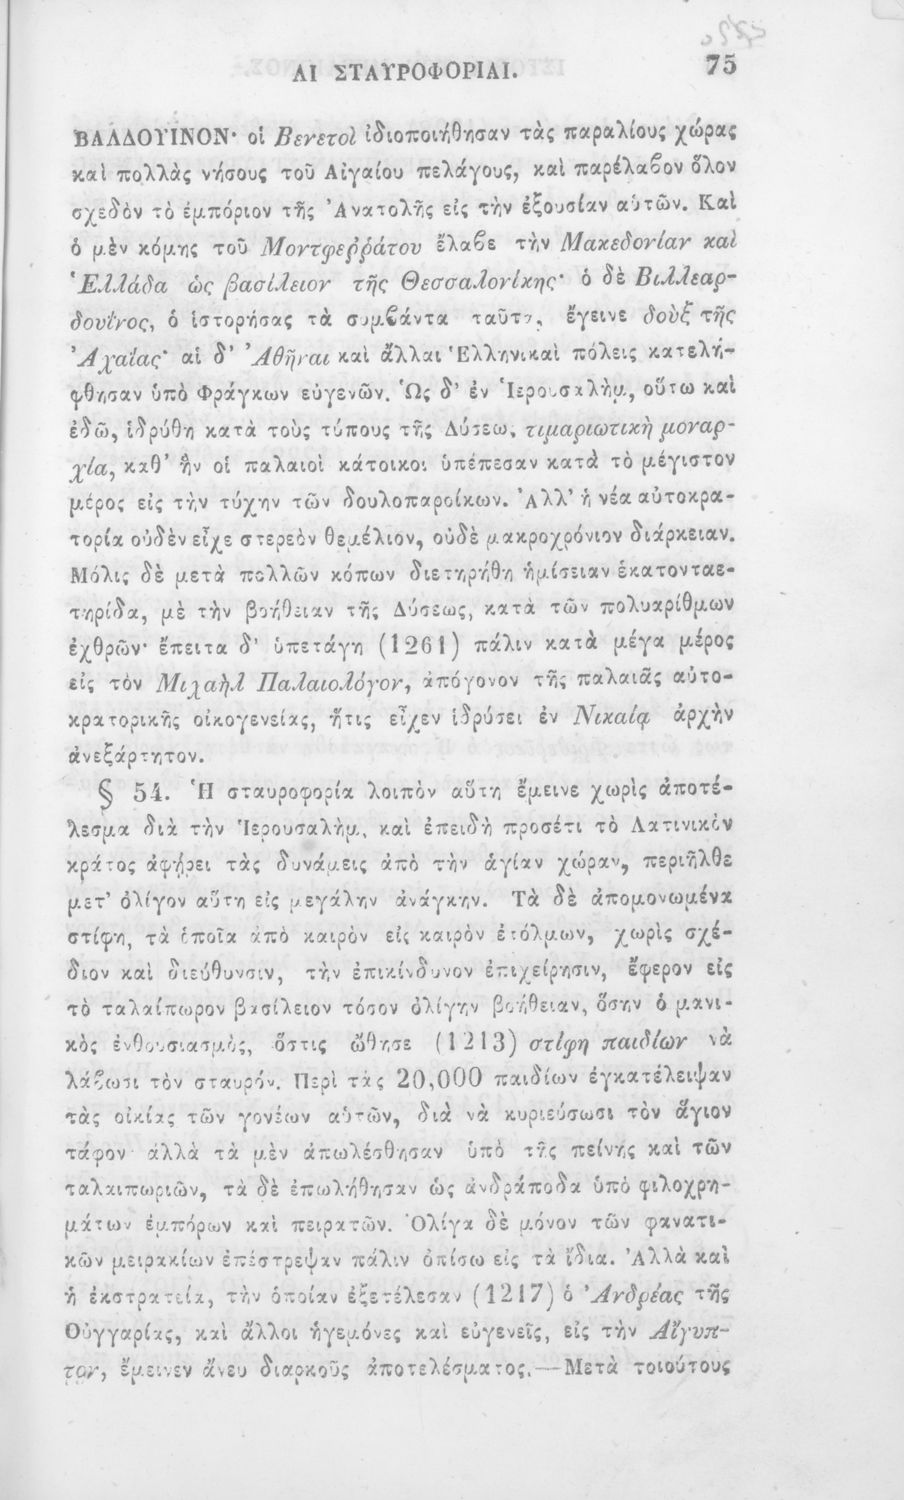 ΑΙ ΣΤΑΥΡΟΦΟΡΙΑΙ. 75
ΒΑΛΔΟΥΙΝΟΝ· οἱ Βενετοὶ ἰδιοποιήθησαν τὰς παραλίους χώρας
καὶ πολλὰς νήσους τοῦ Αἰγαίου πελάγους, καὶ παρέλαβον ὅλον
σχεδὸν τὸ ἐμπόριον τῆς Ἀνατολῆς εἰς τὴν ἐξουσίαν αὑτῶν. Καὶ
ὁ μὲν κόμης τοῦ Μοντφεῤῥάτου ἔλαβε τὴν Μακεδονίαν καὶ
Ἑλλάδα ὡς βασίλειον τῆς Θεσσαλονίκης· ὁ δὲ Βιλλεαρ-
δουῖνος, ὁ ἱστορήσας τὰ συμβάντα ταῦτα, ἔγεινε δοὺξ τῆς
Ἀχαΐας· αἱ δ' Ἀθῆναι καὶ ἄλλαι Ἑλληνικαὶ πόλεις κατελή-
φθησαν ὑπὸ Φράγκων εὐγενῶν. Ὡς δ' ἐν Ἱερουσαλὴμ, οὕτω καὶ
ἐδῶ, ἱδρύθη κατὰ τοὺς τύπους τῆς Δύσεως τιμαριωτικὴ μοναρ-
χία, καθ' ἣν οἱ παλαιοὶ κάτοικοι ὑπέπεσαν κατὰ τὸ μέγιστον
μέρος εἰς τὴν τύχην τῶν δουλοπαροίκων. Ἀλλ' ἡ νέα αὐτοκρα-
τορία οὐδὲν εἶχε στερεὸν θεμέλιον, οὐδὲ μακροχρόνιον διάρκειαν.
Μόλις δὲ μετὰ πολλῶν κόπων διετηρήθη ἡμίσειαν ἑκατονταε-
τηρίδα, μὲ τὴν βοήθειαν τῆς Δύσεως, κατὰ τῶν πολυαρίθμων
ἐχθρῶν· ἔπειτα δ' ὑπετάγη (1261) πάλιν κατὰ μέγα μέρος
εἰς τὸν Μιχαὴλ Παλαιολόγον, ἀπόγονον τῆς παλαιᾶς αὐτο-
κρατορικῆς οἰκογενείας, ἥτις εἶχεν ἱδρύσει ἐν Νικαίᾳ ἀρχὴν
ἀνεξάρτητον.
§ 54. Ἡ σταυροφορία λοιπὸν αὕτη ἔμεινε χωρὶς ἀποτέ-
λεσμα διὰ τὴν Ἱερουσαλὴμ, καὶ ἐπειδὴ προσέτι τὸ Λατινικὸν
κράτος ἀφῄρει τὰς δυνάμεις ἀπὸ τὴν ἁγίαν χώραν, περιῆλθε
μετ' ὀλίγον αὕτη εἰς μεγάλην ἀνάγκην. Τὰ δὲ ἀπομονωμένα
στίφη, τὰ ὁποῖα ἀπὸ καιρὸν εἰς καιρὸν ἐτόλμων, χωρὶς σχέ-
διον καὶ διεύθυνσιν, τὴν ἐπικίνδυνον ἐπιχείρησιν, ἔφερον εἰς
τὸ ταλαίπωρον βασίλειον τόσον ὀλίγην βοήθειαν, ὅσην ὁ μανι-
κὸς ἐνθουσιασμὸς, ὅστις ὤθησε (1213) στίφη παιδίων νὰ
λάβωσι τὸν σταυρόν. Περὶ τὰς 20,000 παιδίων ἐγκατέλειψαν
τὰς οἰκίας τῶν γονέων αὑτῶν, διὰ νὰ κυριεύσωσι τὸν ἅγιον
τάφον· ἀλλὰ τὰ μὲν ἀπωλέσθησαν ὑπὸ τῆς πείνης καὶ τῶν
ταλαιπωριῶν, τὰ δὲ ἐπωλήθησαν ὡς ἀνδράποδα ὑπὸ φιλοχρη-
μάτων ἐμπόρων καὶ πειρατῶν. Ὀλίγα δὲ μόνον τῶν φανατι-
κῶν μειρακίων ἐπέστρεψαν πάλιν ὀπίσω εἰς τὰ ἴδια. Ἀλλὰ καὶ
ἡ ἐκστρατεία, τὴν ὁποίαν ἐξετέλεσαν (1217) ὁ Ἀνδρέας τῆς
Οὑγγαρίας, καὶ ἄλλοι ἡγεμόνες καὶ εὐγενεῖς, εἰς τὴν Αἴγυπ-
τον, ἔμεινεν ἄνευ διαρκοῦς ἀποτελέσματος.—Μετὰ τοιούτους